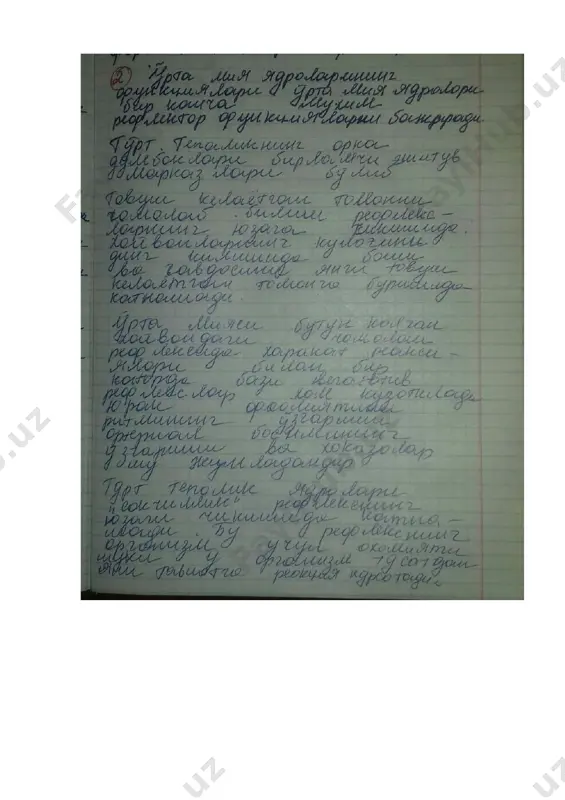 2) Ўрта мия ядроларининг
функциялари Ўрта мия ядролари
бир канча мухим
рефлектор функцияларни бажаради
Тўрт Тепаликнинг орка
думбоклари бирламчи эшитув
марказлари булиб
Товуш келаётган томонни
чамалаб билиш рефлекс-
ларнинг юзага чикишида.
хайвонларнинг кулогини
динг килишида боши
ва гавдасини янги товуш
келаётган томонга буришида
катнашади.
Ўрта мияси бутун колган
хайвондаги чамалаш
рефлексида харакат реакци-
ялари билан бир
каторда баъзи вегетатив
рефлекслар хам кузатилади
юрак фаолиятини
ритмининг узгариши
артериал босимининг
узгариши ва хоказолар
шу жумладандир
Тўрт тепалик ядролари
"сокчилик" рефлексининг
юзага чикишида катна-
шади. Бу рефлекснинг
организм учун ахамияти
шуки у организм тусатдан
янги таъсиротга реакция курсатади.
Fayllhub.uz
uz
uz